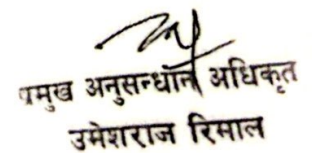 प्रमुख अनुसन्धान अधिकृत
उमेशराज रिमाल